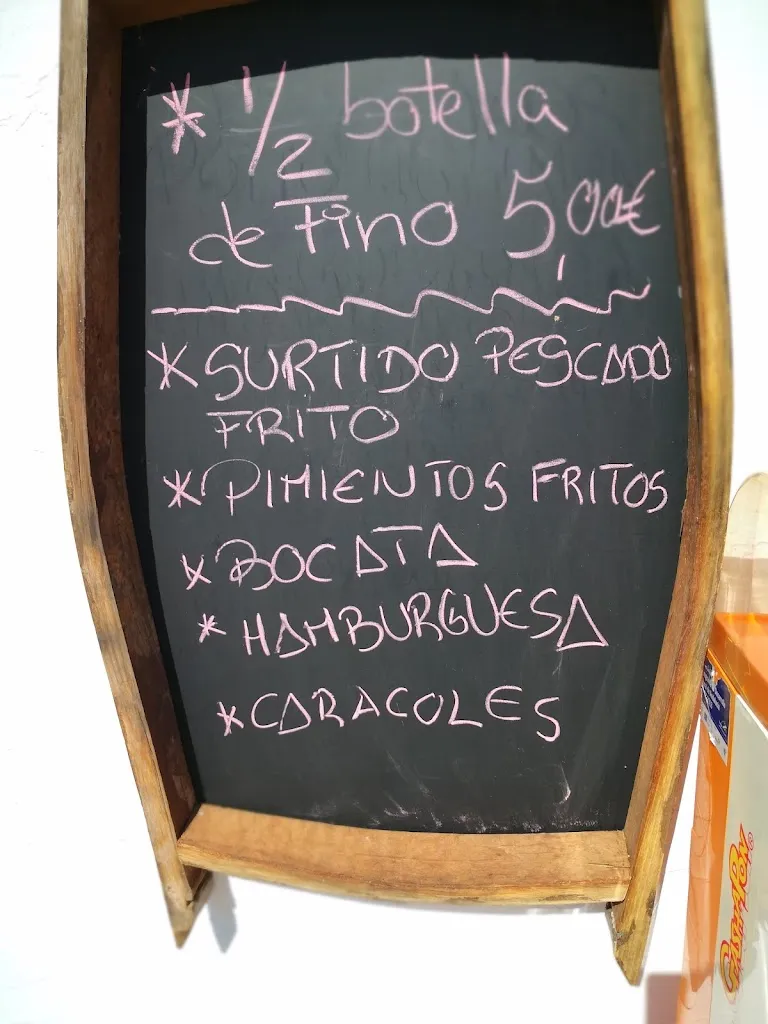 * 1/2 botella
de Fino 5,00€
* SURTIDO PESCADO
FRITO
* PIMIENTOS FRITOS
* BOCATA
* HAMBURGUESA
* CARACOLES